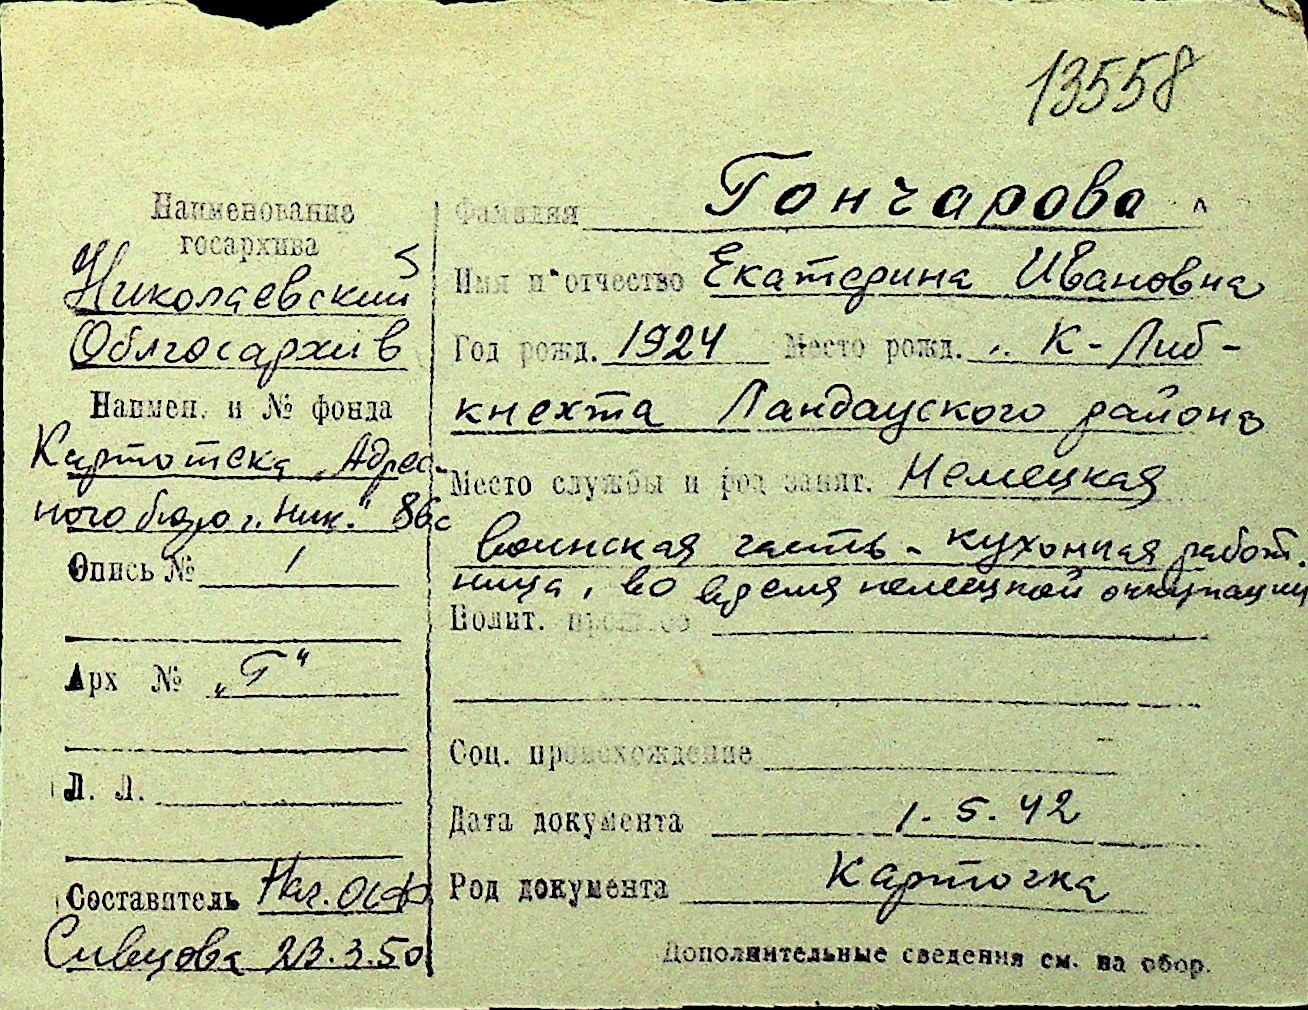 13558
Наименование
госархива
Николаевский
Облгосархив
Наимен. и № фонда
Картотека „Адрес-
ного бюро г. Ник." 86с
Опись № 1
Арх № „Г"
Л. Л.
Составитель Нач. ОСФ
Сивцова 23.3.50
Фамилия Гончарова
Имя и отчество Екатерина Ивановна
Год рожд. 1924 Место рожд. К-Либ-
кнехта Ландауского района
Место службы и род занят. Немецкая
воинская часть - кухонная работ.
ница, во время немецкой оккупации
Полит. прошлое
Соц. происхождение -
Дата документа 1.5.42
Род документа Карточка
Дополнительные сведения см. на обор.